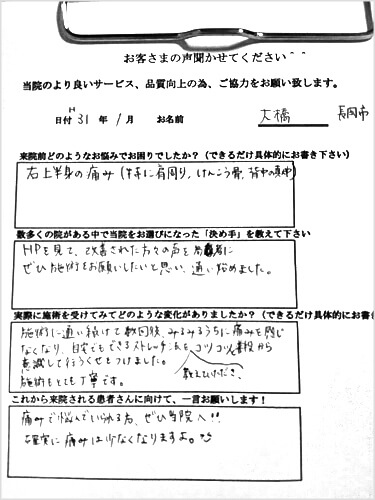 お客さまの声聞かせてください^^
当院のより良いサービス、品質向上の為、ご協力をお願い致します。
日付 H31 年 1 月 お名前 大橋 長岡市
来院前どのようなお悩みでお困りでしたか?(できるだけ具体的にお書き下さい)
右上半身の痛み(特に肩周り,けんこう骨,背中の真中)
数多くの院がある中で当院をお選びになった「決め手」を教えて下さい
HPを見て、改善された方々の声を参考に
ぜひ施術をお願いしたいと思い、通い始めました。
実際に施術を受けてみてどのような変化がありましたか?(できるだけ具体的にお書き
施術に通い続けて数回後、みるみるうちに痛みを感じ
なくなり、自宅でもできるストレッチ法をコツコツと普段から
教えていただき、
意識して行うくせをつけました。
施術もとても丁寧です。
これから来院される患者さんに向けて、一言お願いします!
痛みで悩んでいられる方、ぜひ当院へ!!
確実に痛みは少なくなりますよ。